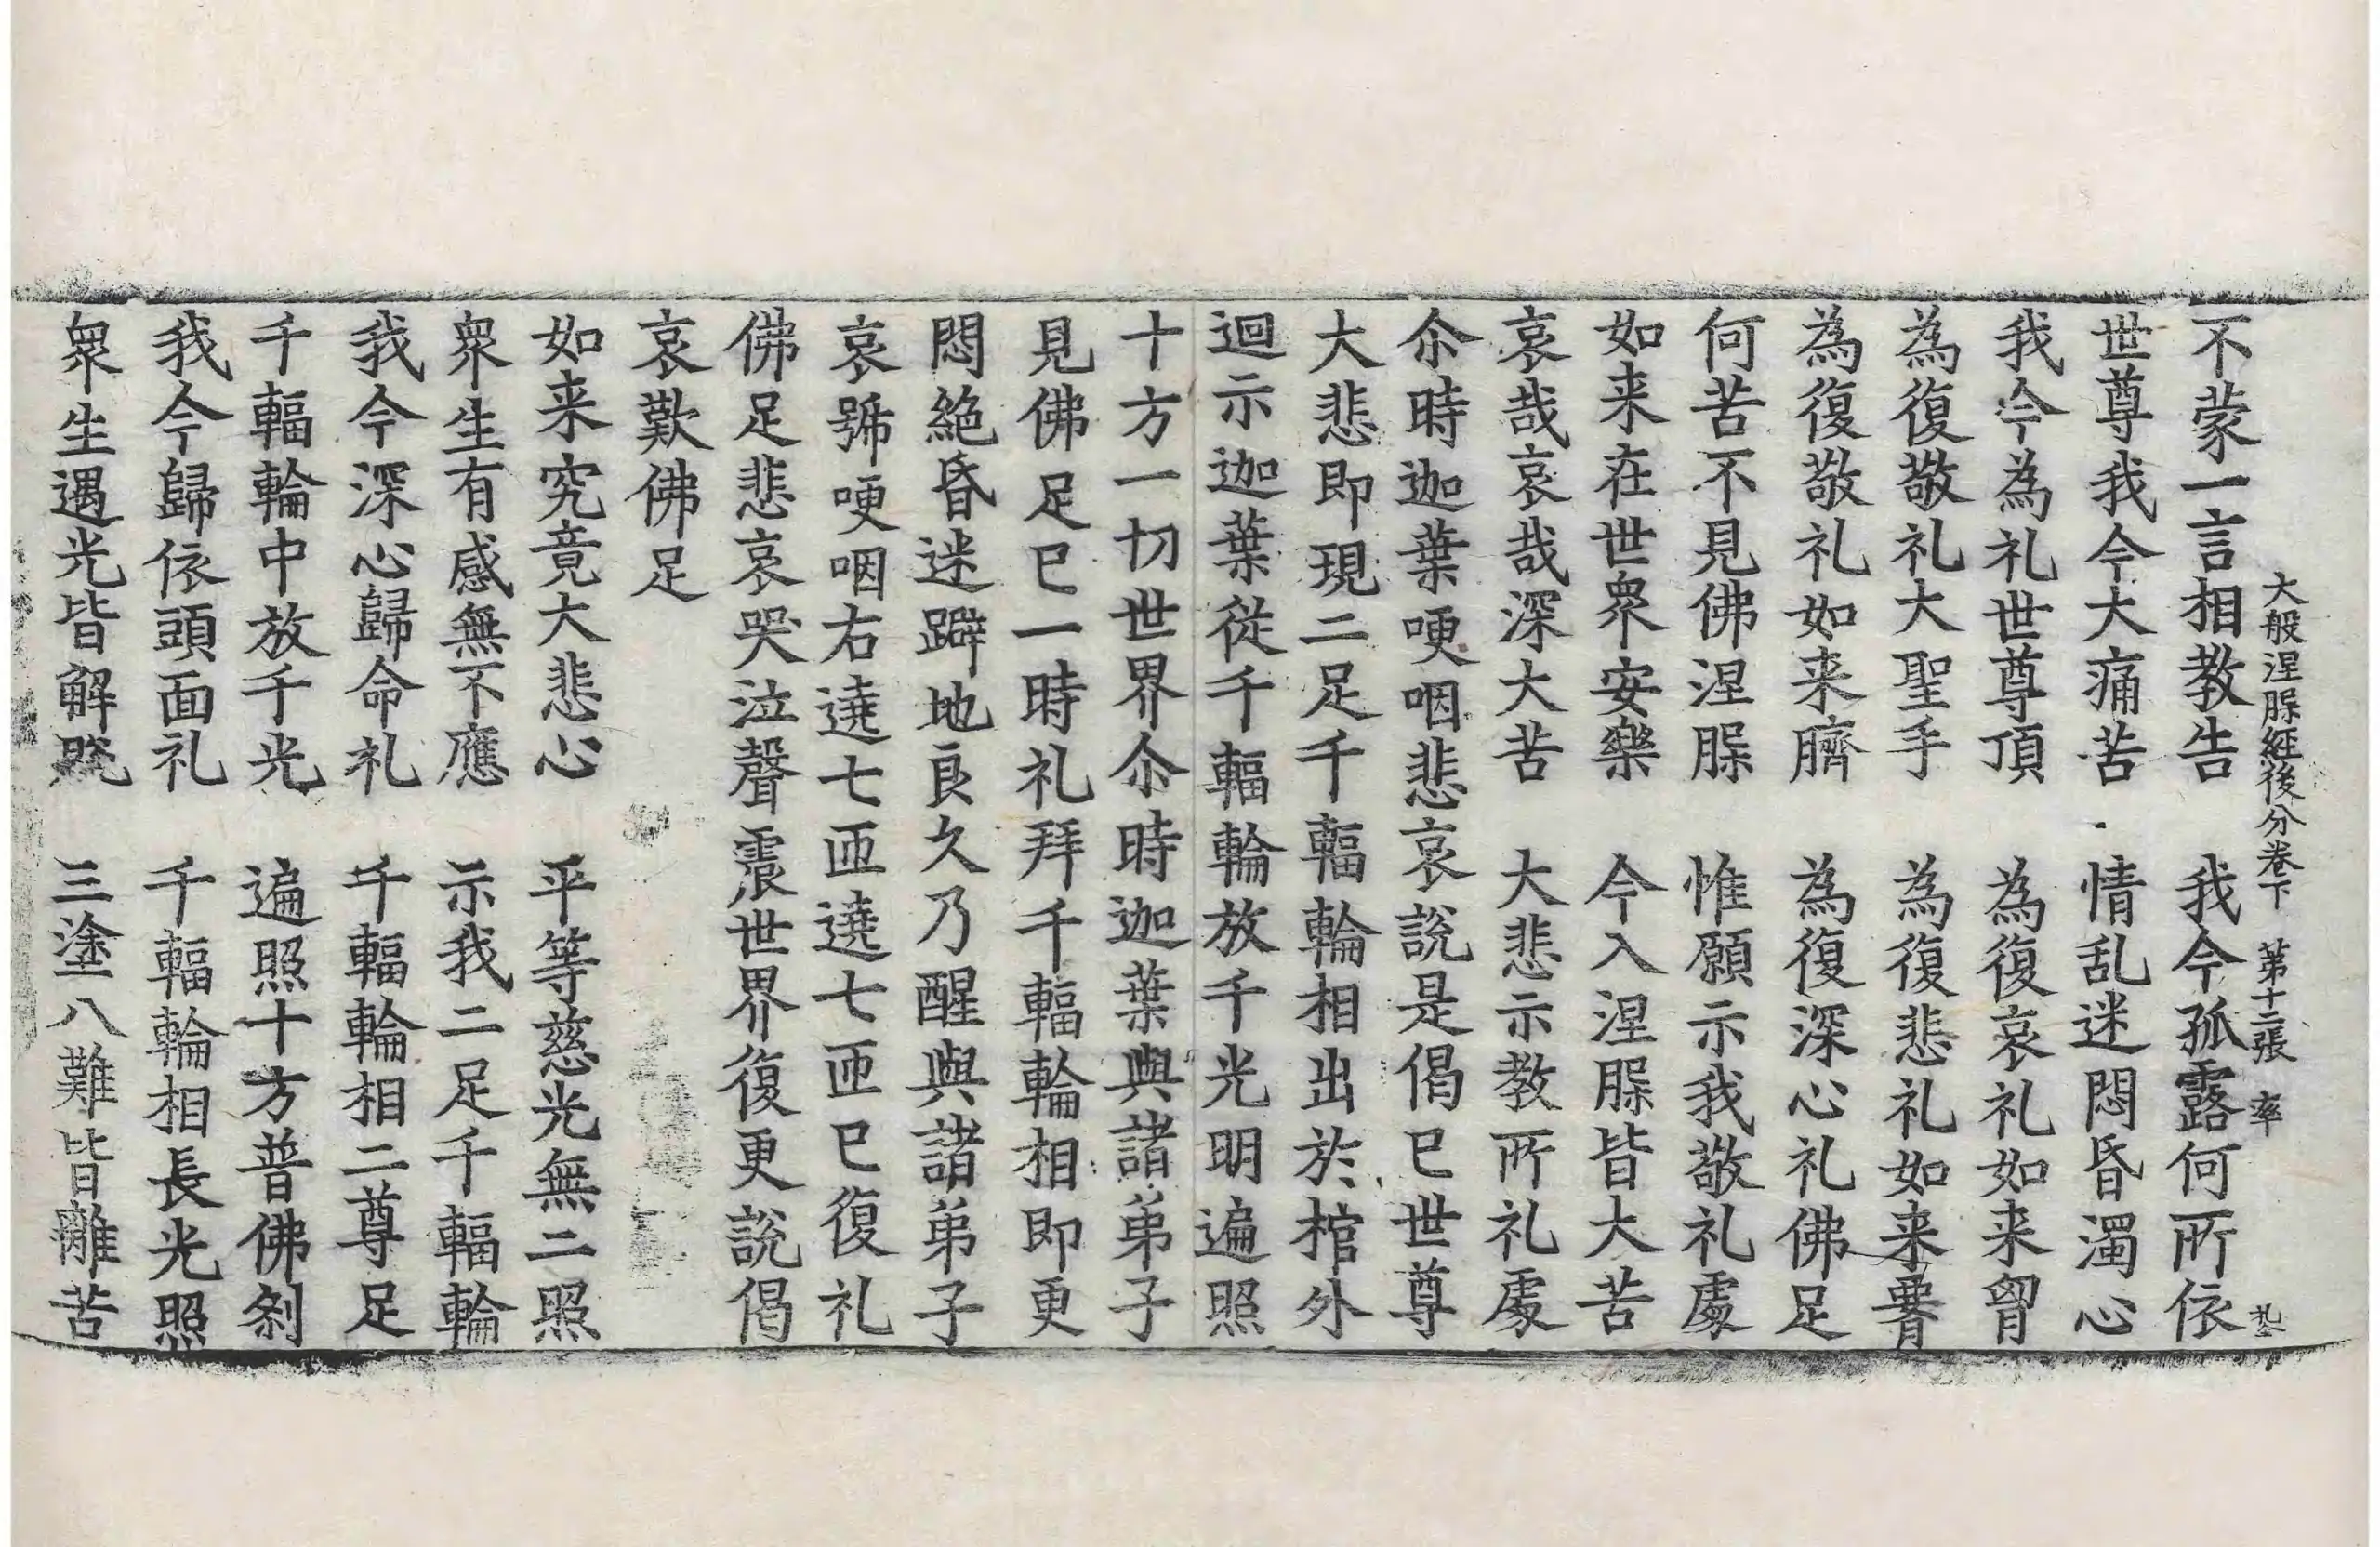 大般涅𦞦經後分卷下　第十二張　率
不蒙一言相教告　我今孤露何所依
世尊我今大痛苦　情乱迷悶昏濁心
我今為礼世尊頂　為復哀礼如来𦚾
為復敬礼大聖手　為復悲礼如来𦝫
為復敬礼如来臍　為復深心礼佛足
何苦不見佛涅𦞦　惟願示我敬礼處
如来在世衆安樂　今入涅𦞦皆大苦
哀哉哀哉深大苦　大悲示教所礼處
尒時迦葉哽咽悲哀說是偈已世尊
大悲即現二足千輻輪相出於棺外
迴示迦葉從千輻輪放千光明遍照
十方一切世界尒時迦葉與諸弟子
見佛足已一時礼拜千輻輪相即更
悶絕昏迷躃地良久乃醒與諸弟子
哀號哽咽右遶七匝遶七匝已復礼
佛足悲哀哭泣聲震世界復更說偈
哀歎佛足
如来究竟大悲心　平等慈光無二照
衆生有感無不應　示我二足千輻輪
我今深心歸命礼　千輻輪相二尊足
千輻輪中放千光　遍照十方普佛刹
我今歸依頭面礼　千輻輪相長光照
衆生遇光皆解脫　三塗八難皆離苦